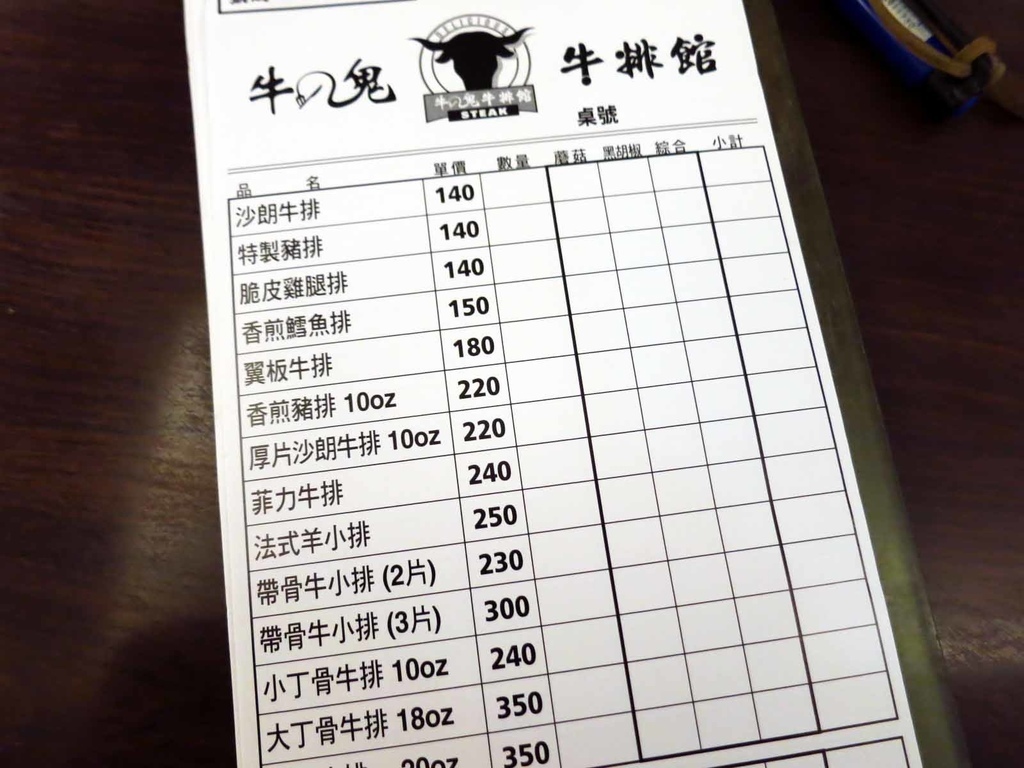 牛の鬼 牛排館
牛の鬼牛排館
STEAK
桌號
品名 單價 數量 蘑菇 黑胡椒 綜合 小計
沙朗牛排 140
特製豬排 140
脆皮雞腿排 140
香煎鱈魚排 150
翼板牛排 180
香煎豬排 10oz 220
厚片沙朗牛排 10oz 220
菲力牛排 240
法式羊小排 250
帶骨牛小排 (2片) 230
帶骨牛小排 (3片) 300
小丁骨牛排 10oz 240
大丁骨牛排 18oz 350
排 20oz 350